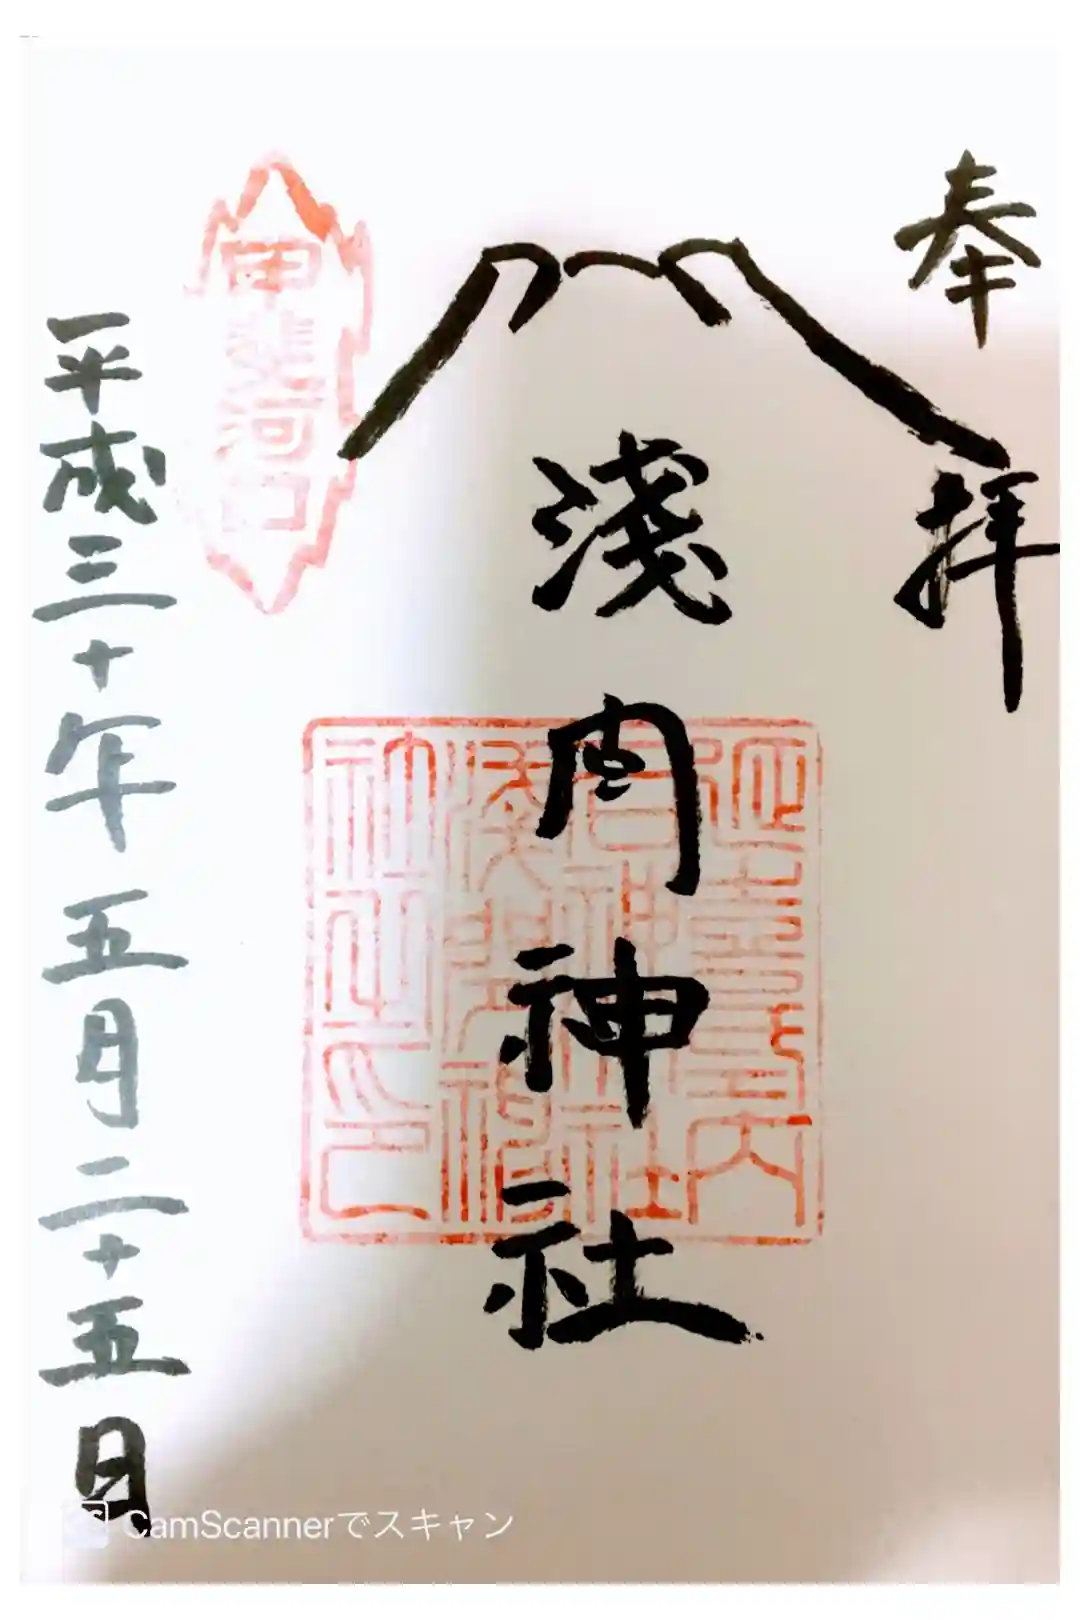 奉拝
淺間神社
甲斐河口
平成三十年五月二十五日
CamScannerでスキャン